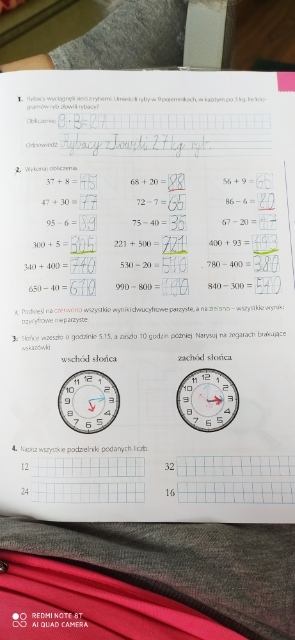 1. Rybacy wyciągnęli sieci z rybami. Umieścili ryby w 9 pojemnikach, w każdym po 3 kg. Ile kilo-
gramów ryb złowili rybacy?
Obliczenie: 9·3=27
Odpowiedź: Rybacy złowili 27 kg ryb.
2. Wykonaj obliczenia.
37 + 8 = 45 68 + 20 = 88 56 + 9 = 65
47 + 30 = 77 72 – 7 = 65 86 – 6 = 80
95 – 6 = 89 75 – 40 = 35 67 – 20 = 47
300 + 5 = 305 221 + 500 = 721 400 + 93 = 493
340 + 400 = 740 530 – 20 = 510 780 – 400 = 380
650 – 40 = 610 990 – 800 = 190 840 – 300 = 540
Podkreśl na czerwono wszystkie wyniki dwucyfrowe parzyste, a na zielono – wszystkie wyniki
trzycyfrowe nieparzyste.
3. Słońce wzeszło o godzinie 5.15, a zaszło 10 godzin później. Narysuj na zegarach brakujące
wskazówki.
wschód słońca zachód słońca
12 1 2 3 4 5 6 7 8 9 10 11
12 1 2 3 4 5 6 7 8 9 10 11
4. Napisz wszystkie podzielniki podanych liczb.
12 32
24 16
REDMI NOTE 8T
AI QUAD CAMERA